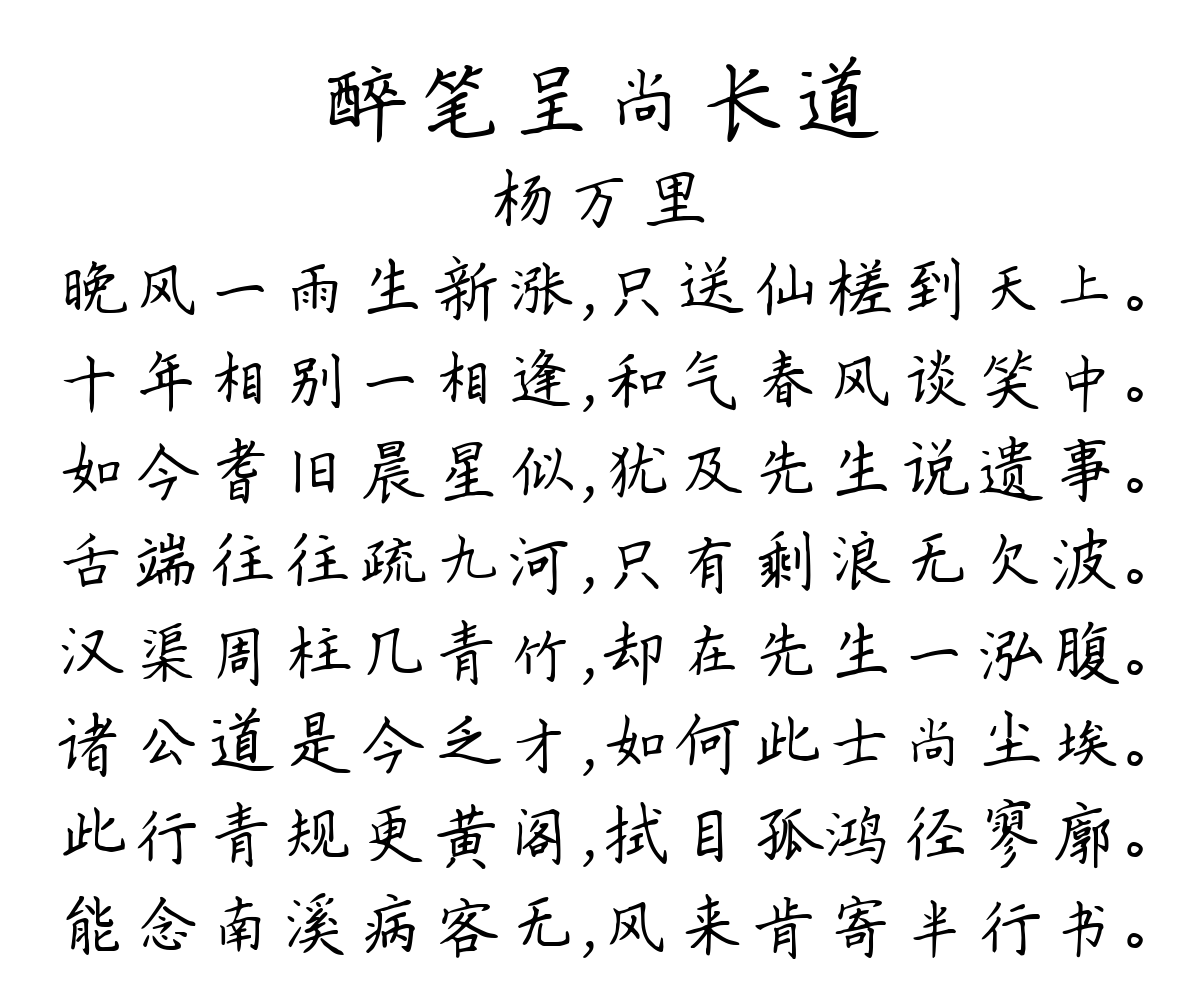 醉笔呈尚长道
杨万里
晚风一雨生新涨,只送仙槎到天上。
十年相别一相逢,和气春风谈笑中。
如今耆旧晨星似,犹及先生说遗事。
舌端往往疏九河,只有剩浪无欠波。
汉渠周柱几青竹,却在先生一泓腹。
诸公道是今乏才,如何此士尚尘埃。
此行青规更黄阁,拭目孤鸿径寥廓。
能念南溪病客无,风来肯寄半行书。